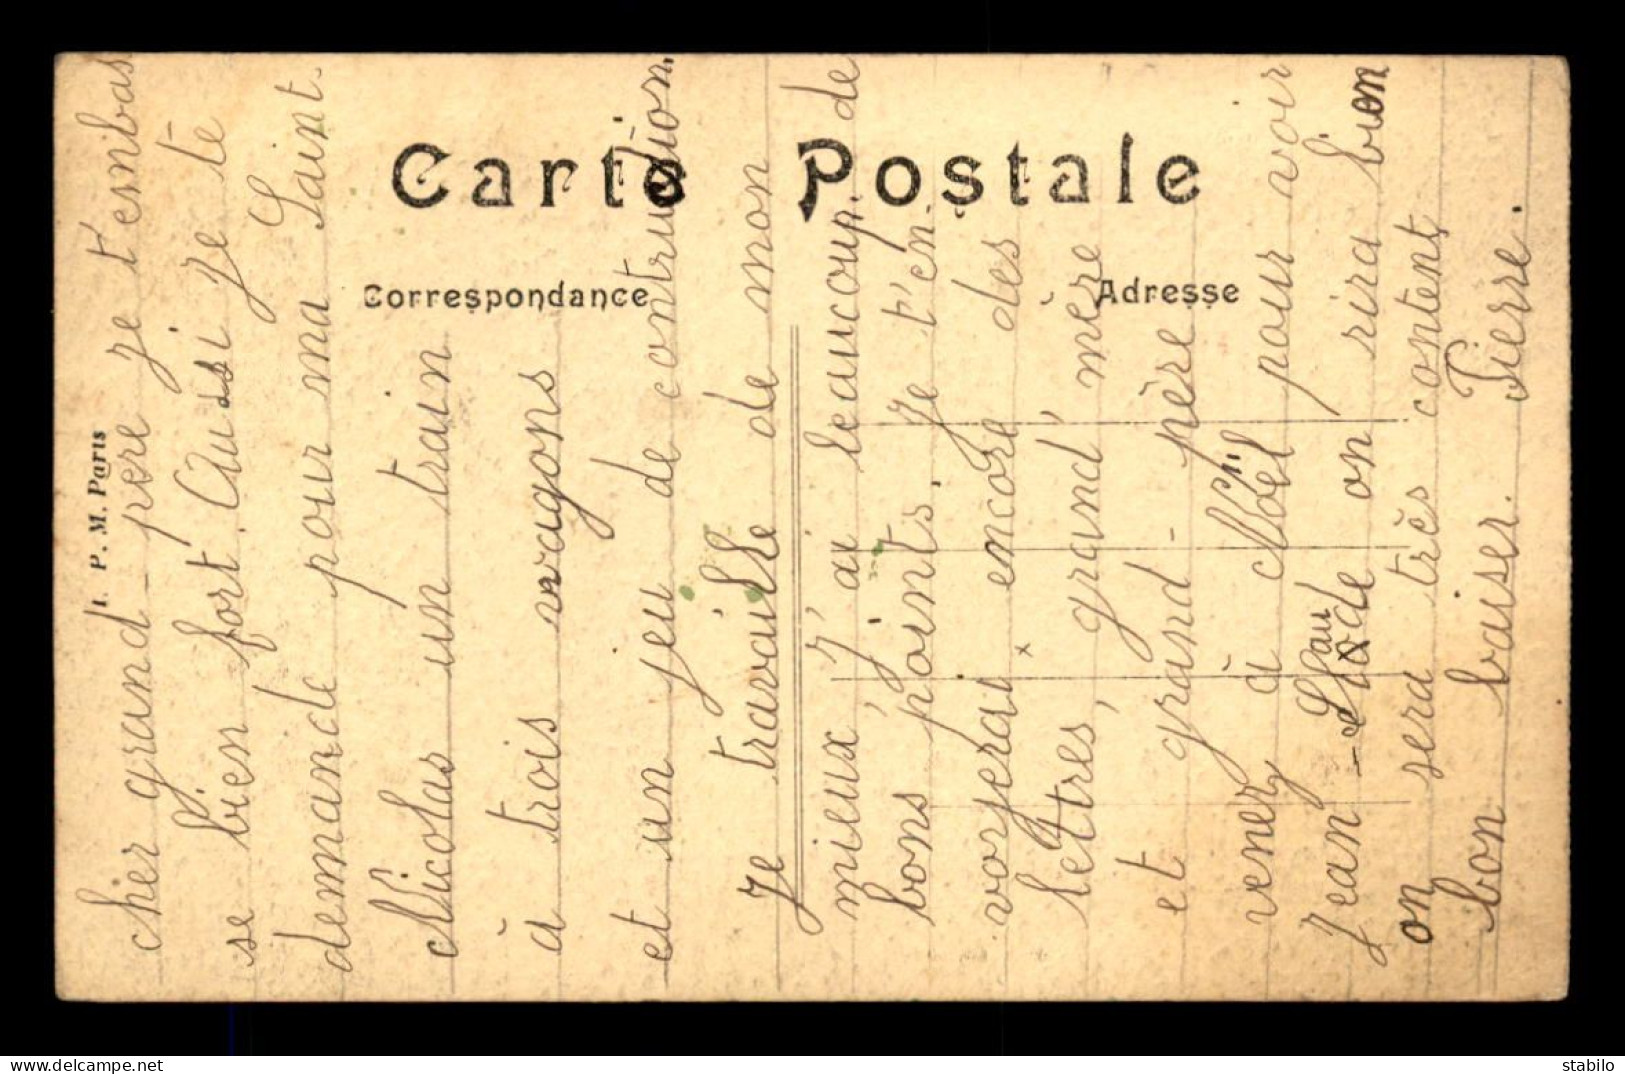 Carte Postale
Correspondance
Adresse
1. P. M. Paris
cher grand-père je t'embas
se bien fort. Aussi je te
demande pour ma Saint.
Nicolas un train
à trois wagons
et un jeu de contrudion.
je travaille de mon
mieux, j'ai beaucoup de
bons points. Je t'en
vorjerai encore des
lettres, grand'mère
et grand-père
venez à Noël pour voir
Jean-Claude on rira bien
on sera très content
bon baiser. Pierre.
stabilo